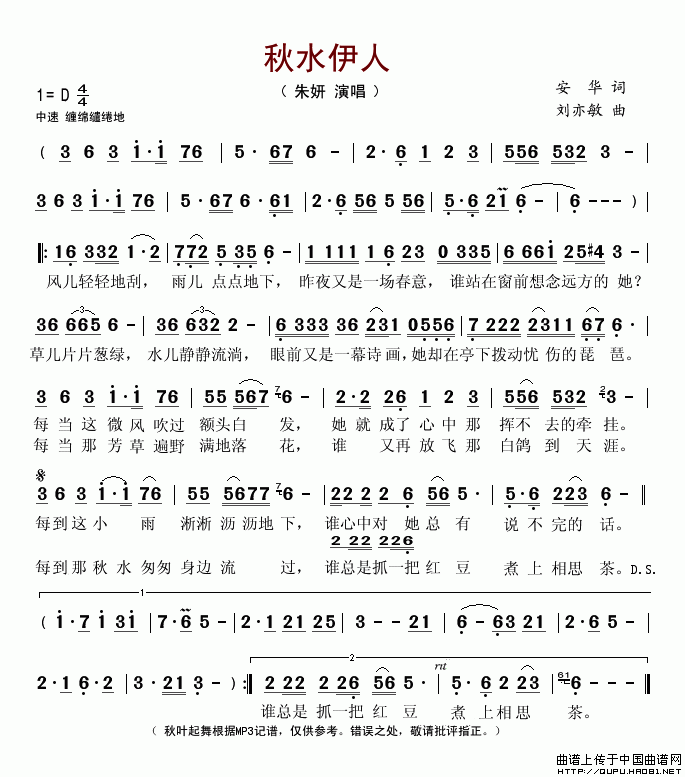 秋水伊人
1= D 4/4
（ 朱妍 演唱 ）
安 华 词
中速 缠绵缱绻地
刘亦敏 曲
( 3 6 3 i·i 76 | 5· 67 6 - | 2·6 1 2 3 | 556 532 3 - |
3 6 3 i·i 76 | 5· 67 6·61 | 2·6 56 5 56 | 5·6 21 6 - | 6 - - - ) |
|: 16 332 1·2 | 772 535 6 - | 1 111 1 6 23 0 335 | 6 661 25#4 3 - |
风儿轻轻地刮， 雨儿 点点地下， 昨夜又是一场春意， 谁站在窗前想念远方的 她？
36 665 6 - | 36 632 2 - | 6 333 36 231 0 556 | 7 222 2311 67 6 |
草儿片片葱绿， 水儿静静流淌， 眼前又是一幕诗画，她却在亭下拨动忧 伤的琵 琶。
3 6 3 i·i 76 | 55 567 6 - | 2·2 26 1 2 3 | 556 532 3 - |
每 当 这 微 风 吹过 额头白 发， 她 就 成了 心 中 那 挥不 去的牵 挂。
每 当 那 芳 草 遍野 满地落 花， 谁 又再 放 飞 那 白鸽 到 天 涯。
3 6 3 i·i 76 | 55 5677 6 - | 22 22 2 6 56 5 | 5·6 223 6 - ‖
每到 这 小 雨 淅淅 沥沥地 下， 谁心中对 她 总 有 说 不 完的 话。
2 22 226
每到 那 秋 水 匆匆 身边 流 过， 谁总是抓一把 红 豆 煮 上 相思 茶。D.S.
1
( i·7 i 3i | 7·6 5 - | 2·1 2 35 | 2 - - 21 | 6 - 63 21 | 5·2 21 |
2·1 6 2 | 3·21 2 - ) :| 2 22 22 6 56 5 | 5·6 2 23 | 6 - - - :|
2
rit
谁总是 抓 一把 红 豆 煮 上相思 茶。
（ 秋叶起舞根据MP3记谱，仅供参考。错误之处，敬请批评指正。）
曲谱上传于中国曲谱网
http://QUPU.HAO81.NET